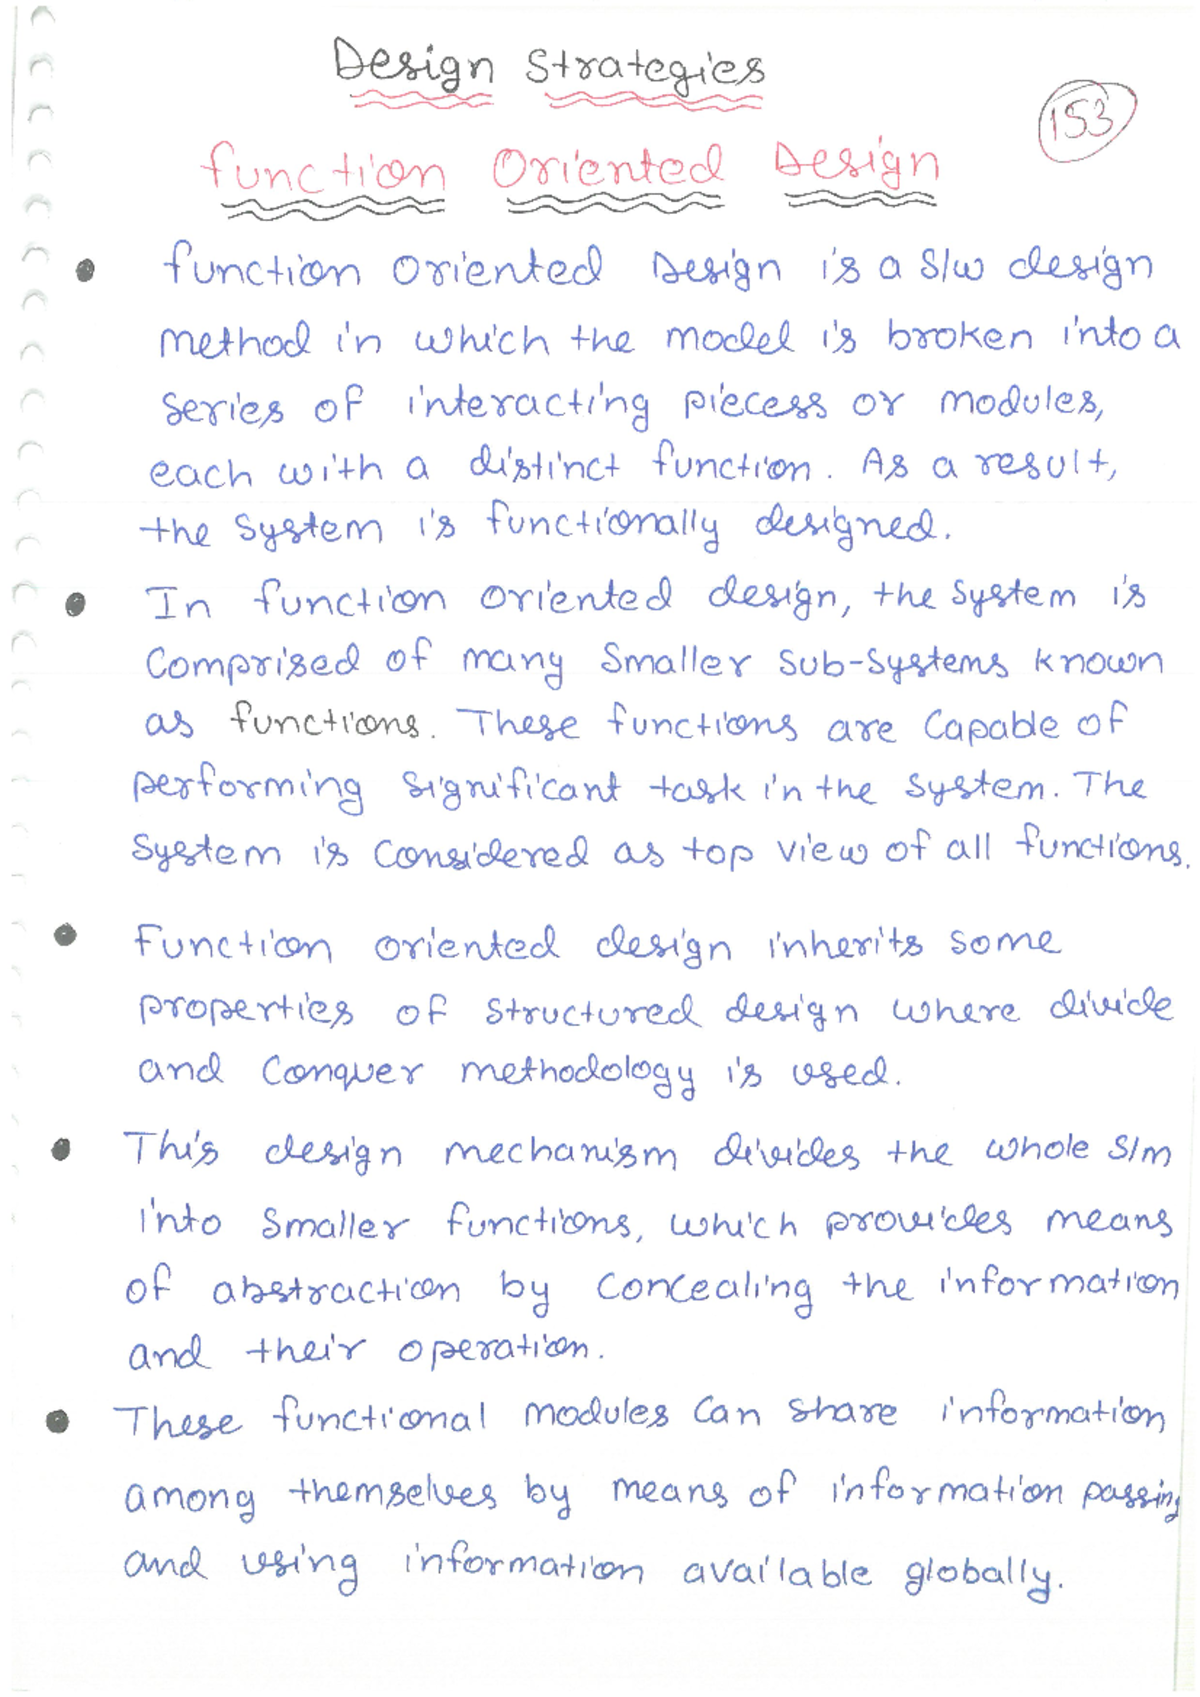 Design Strategies
153
function Oriented Design
function oriented Design is a S/w design
method in which the model is broken into a
series of interacting piecess or modules,
each with a distinct function. As a result,
the system is functionally designed.
In function oriented design, the system is
Comprised of many smaller sub-systems known
as functions. These functions are capable of
performing significant task in the system. The
system is considered as top view of all functions.
Function oriented design inherits some
properties of structured design where divide
and conquer methodology is used.
This design mechanism divides the whole S/m
into smaller functions, which provides means
of abstraction by concealing the information
and their operation.
These functional modules can share information
among themselves by means of information passing
and using information available globally.